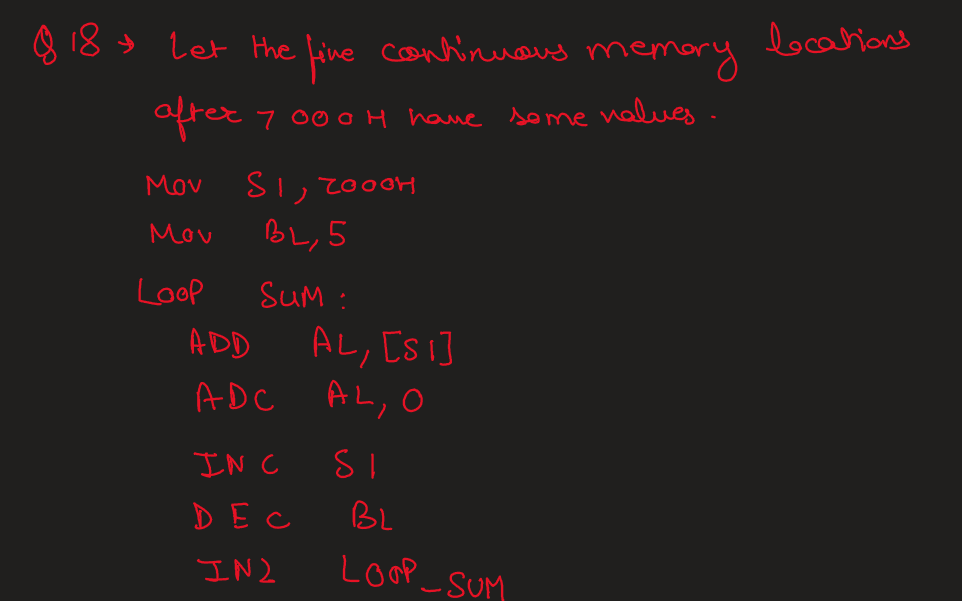 Q 18 → Let the five continuous memory locations
after 7000H have some values.
Mov SI, 7000H
Mov BL, 5
LOOP SUM:
ADD AL, [SI]
ADC AL, 0
INC SI
DEC BL
INZ LOOP_SUM